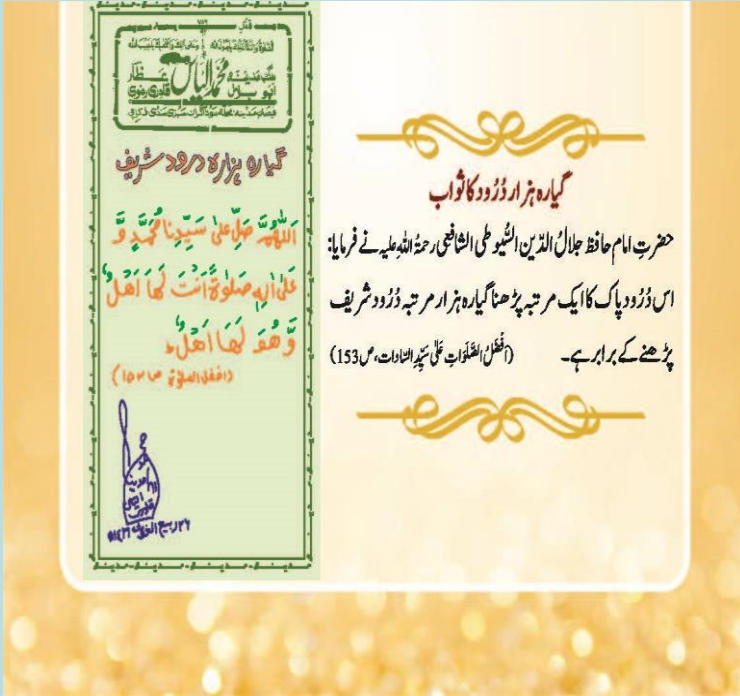 ۷۸۶
محمد الیاس عطار
ابو بلال قادری رضوی
گیارہ ہزارہ درود شریف
اَللّٰهُمَّ صَلِّ عَلٰی سَیِّدِنَا مُحَمَّدٍ وَّ
عَلٰی اٰلِهٖ صَلٰوةً اَنْتَ لَهَا اَهْلٌ
وَّ هُوَ لَهَا اَهْلٌ
گیارہ ہزار دُرُود کا ثواب
حضرتِ امام حافظ جلالُ الدّین السُّیوطی الشافعی رحمۃُ اللہِ علیہ نے فرمایا:
اس دُرُودِ پاک کا ایک مرتبہ پڑھنا گیارہ ہزار مرتبہ دُرُود شریف
پڑھنے کے برابر ہے۔ (اَفْضَلُ الصَّلَوَاتِ عَلٰی سَیِّدِ السَّادات، ص153)